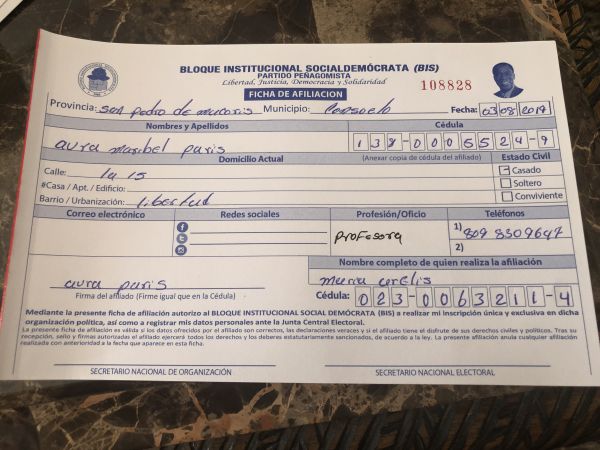 BLOQUE INSTITUCIONAL SOCIALDEMÓCRATA (BIS)
PARTIDO PEÑAGOMISTA
Libertad, Justicia, Democracia y Solidaridad
FICHA DE AFILIACION
108828
Provincia: San Pedro de macoris Municipio: Consuelo Fecha: 03/08/2017
Nombres y Apellidos Cédula
aura maribel paris 138-0005524-9
Domicilio Actual (Anexar copia de cédula del afiliado) Estado Civil
Calle: la 15 Casado
#Casa / Apt. / Edificio: Soltero
Barrio / Urbanización: libertad Conviviente
Correo electrónico Redes sociales Profesión/Oficio Teléfonos
Profesora 1) 809 8309647
2)
Nombre completo de quien realiza la afiliación
aura paris maria
Firma del afiliado (Firme igual que en la Cédula) Cédula: 023-0063211-4
Mediante la presente ficha de afiliación autorizo al BLOQUE INSTITUCIONAL SOCIAL DEMÓCRATA (BIS) a realizar mi inscripción única y exclusiva en dicha
organización política, así como a registrar mis datos personales ante la Junta Central Electoral.
La presente ficha de afiliación es válida si los datos ofrecidos por el afiliado son correctos, las declaraciones veraces y si el afiliado tiene el disfrute de sus derechos civiles y políticos. Tras su
recepción, sello y firmas autorizadas el afiliado ejercerá todos los derechos y los deberes estatutariamente sancionados, de acuerdo a la ley. La presente afiliación anula cualquier afiliación
realizada con anterioridad a la fecha que aparece en esta ficha.
SECRETARIO NACIONAL DE ORGANIZACIÓN SECRETARIO NACIONAL ELECTORAL